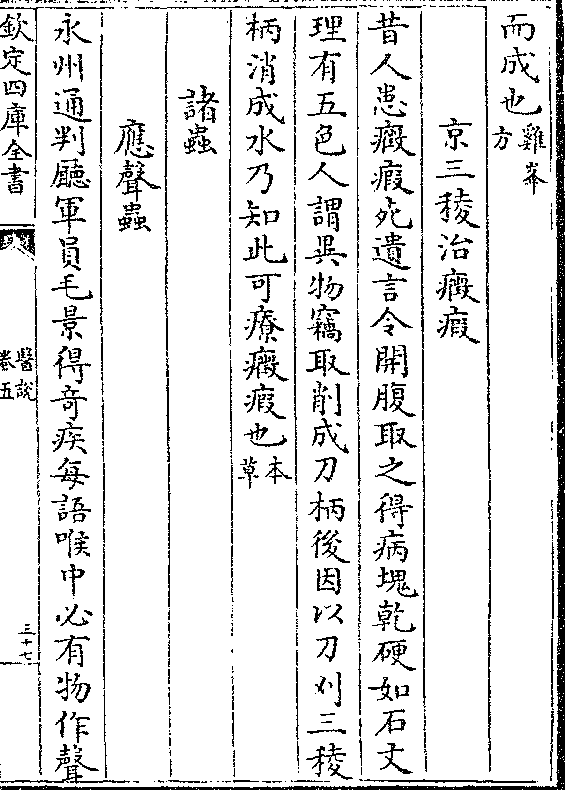 而成也雞峯方
京三稜治癥瘕
昔人患癥瘕死遺言令開腹取之得病塊乾硬如石文
理有五色人謂異物竊取削成刀柄後因以刀刈三稜
柄消成水乃知此可療癥瘕也本草
諸蟲
應聲蟲
永州通判廳軍員毛景得竒疾每語喉中必有物作聲
欽定四庫全書
醫説
卷五
三十七